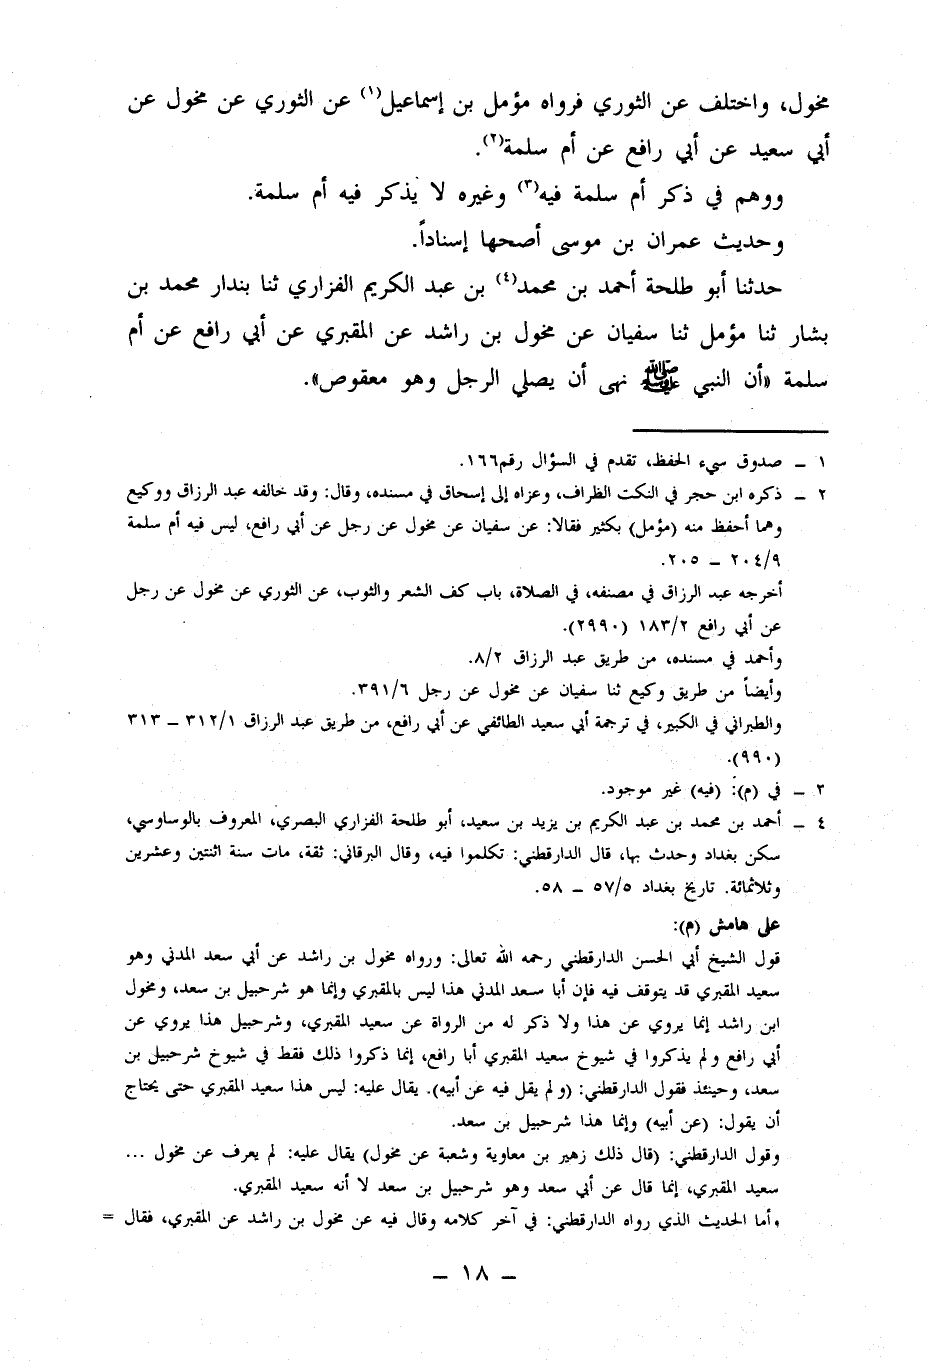 مخول، واختلف عن الثوري فرواه مؤمل بن إسماعيل(١) عن الثوري عن مخول عن
أبي سعيد عن أبي رافع عن أم سلمة(٢).
ووهم في ذكر أم سلمة فيه(٣) وغيره لا يذكر فيه أم سلمة.
وحديث عمران بن موسى أصحها إسناداً.
حدثنا أبو طلحة أحمد بن محمد(٤) بن عبد الكريم الفزاري ثنا بندار محمد بن
بشار ثنا مؤمل ثنا سفيان عن مخول بن راشد عن المقبري عن أبي رافع عن أم
سلمة «أن النبي ﷺ نهى أن يصلي الرجل وهو معقوص».
١ ـ صدوق سيء الحفظ، تقدم في السؤال رقم١٦٦.
٢ ـ ذكره ابن حجر في النكت الظراف، وعزاه إلى إسحاق في مسنده، وقال: وقد خالفه عبد الرزاق ووكيع
وهما أحفظ منه (مؤمل) بكثير فقالا: عن سفيان عن مخول عن رجل عن أبي رافع، ليس فيه أم سلمة
٢٠٤/٩ ـ ٢٠٥.
أخرجه عبد الرزاق في مصنفه، في الصلاة، باب كف الشعر والثوب، عن الثوري عن مخول عن رجل
عن أبي رافع ١٨٣/٢ (٢٩٩٠).
وأحمد في مسنده، من طريق عبد الرزاق ٨/٢.
وأيضاً من طريق وكيع ثنا سفيان عن مخول عن رجل ٣٩١/٦.
والطبراني في الكبير، في ترجمة أبي سعيد الطائفي عن أبي رافع، من طريق عبد الرزاق ٣١٢/١ ـ ٣١٣
(٩٩٠).
٣ ـ في (م): (فيه) غير موجود.
٤ ـ أحمد بن محمد بن عبد الكريم بن يزيد بن سعيد، أبو طلحة الفزاري البصري، المعروف بالوساوسي،
سكن بغداد وحدث بها، قال الدارقطني: تكلموا فيه، وقال البرقاني: ثقة، مات سنة اثنتين وعشرين
وثلاثمائة. تاريخ بغداد ٥٧/٥ ـ ٥٨.
على هامش (م):
قول الشيخ أبي الحسن الدارقطني رحمه الله تعالى: ورواه مخول بن راشد عن أبي سعد المدني وهو
سعيد المقبري قد يتوقف فيه فإن أبا سعد المدني هذا ليس بالمقبري وإنما هو شرحبيل بن سعد، ومخول
ابن راشد إنما يروي عن هذا ولا ذكر له من الرواة عن سعيد المقبري، وشرحبيل هذا يروي عن
أبي رافع ولم يذكروا في شيوخ سعيد المقبري أبا رافع، إنما ذكروا ذلك فقط في شيوخ شرحبيل بن
سعد، وحينئذ فقول الدارقطني: (ولم يقل فيه عن أبيه). يقال عليه: ليس هذا سعيد المقبري حتى يحتاج
أن يقول: (عن أبيه) وإنما هذا شرحبيل بن سعد.
وقول الدارقطني: (قال ذلك زهير بن معاوية وشعبة عن مخول) يقال عليه: لم يعرف عن مخول ...
سعيد المقبري، إنما قال عن أبي سعد وهو شرحبيل بن سعد لا أنه سعيد المقبري.
وأما الحديث الذي رواه الدارقطني: في آخر كلامه وقال فيه عن مخول بن راشد عن المقبري، فقال =
ـ ١٨ ـ